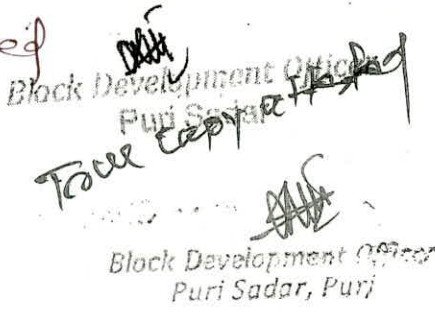 ed
Block Development Officer
Puri Sadar
True copy attested
Block Development Officer
Puri Sadar, Puri